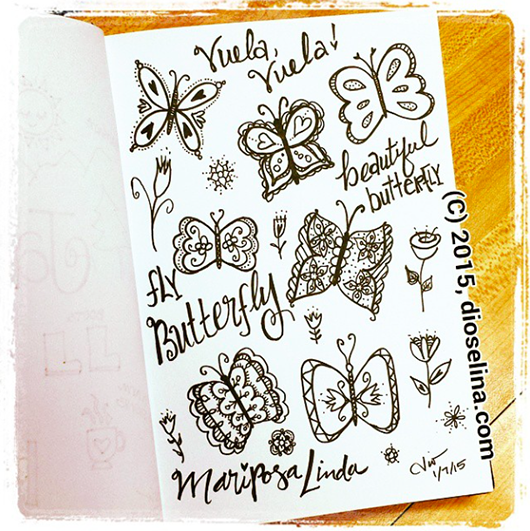 Vuela, Vuela!
beautiful
butterfly
FLY
Butterfly
Mariposa Linda
1/7/15
(C) 2015, dioselina.com